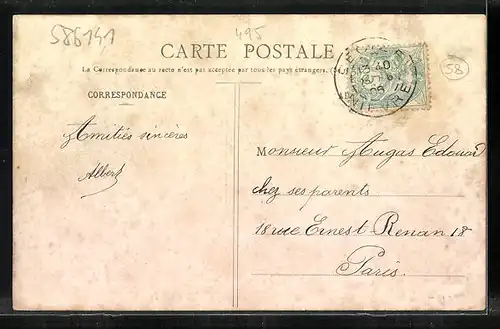 586141
495
CARTE POSTALE
La Correspondance au recto n'est pas acceptée par tous les pays étrangers.
58
CORRESPONDANCE
Amitiés sincères
Albert
Monsieur Augas Edouard
chez ses parents
18 rue Ernest Renan 18
Paris.